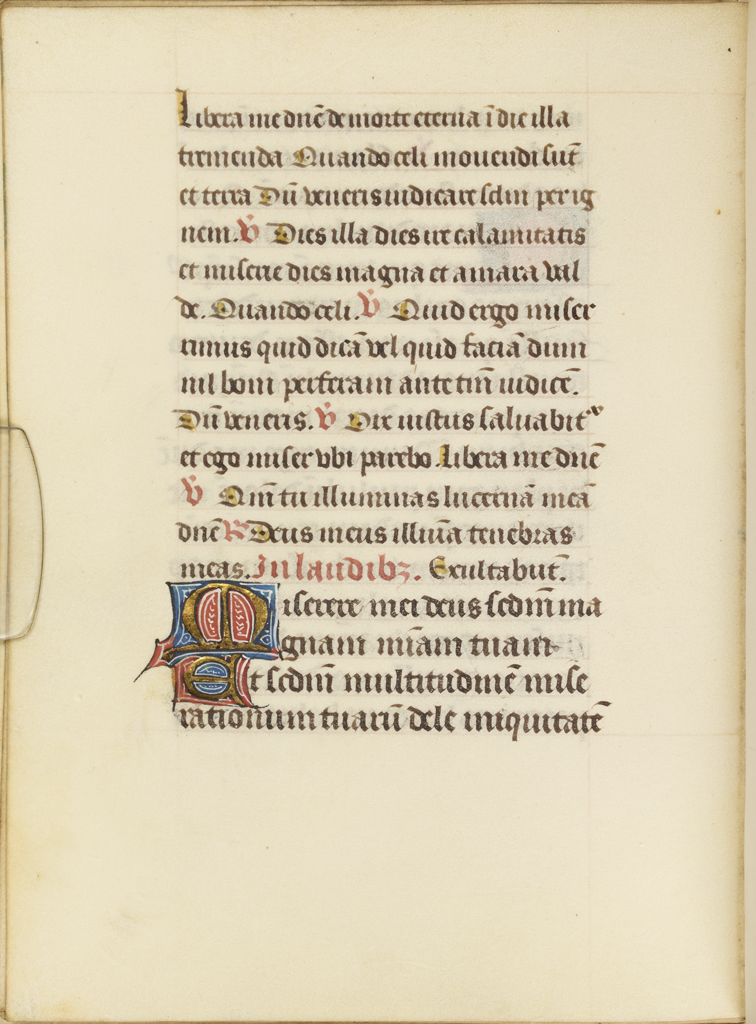 Libera me dnē de morte eterna ī die illa
tremenda Quando celi mouendi sūt
et terra Dū veneris iudicare sclm per ig
nem. v̄ Dies illa dies ire calamitatis
et miserie dies magna et amara val
de. Quando celi. v̄ Quid ergo miser
rimus quid dicā vel quid faciā dum
nil boni perferam ante tm̄ iudicē.
Dū veneris. v̄ Vix iustus saluabit᷒
et ego miser vbi parebo. Libera me dnē
v̄ Qm̄ tu illuminas lucernā meā
dnē R Deus meus illuīa tenebras
meas. In laudibꝫ. Exultabūt.
Miserere mei deus scdm̄ ma
gnam mīam tuam
Et scdm̄ multitudinē mise
rationum tuarū dele iniquitatē